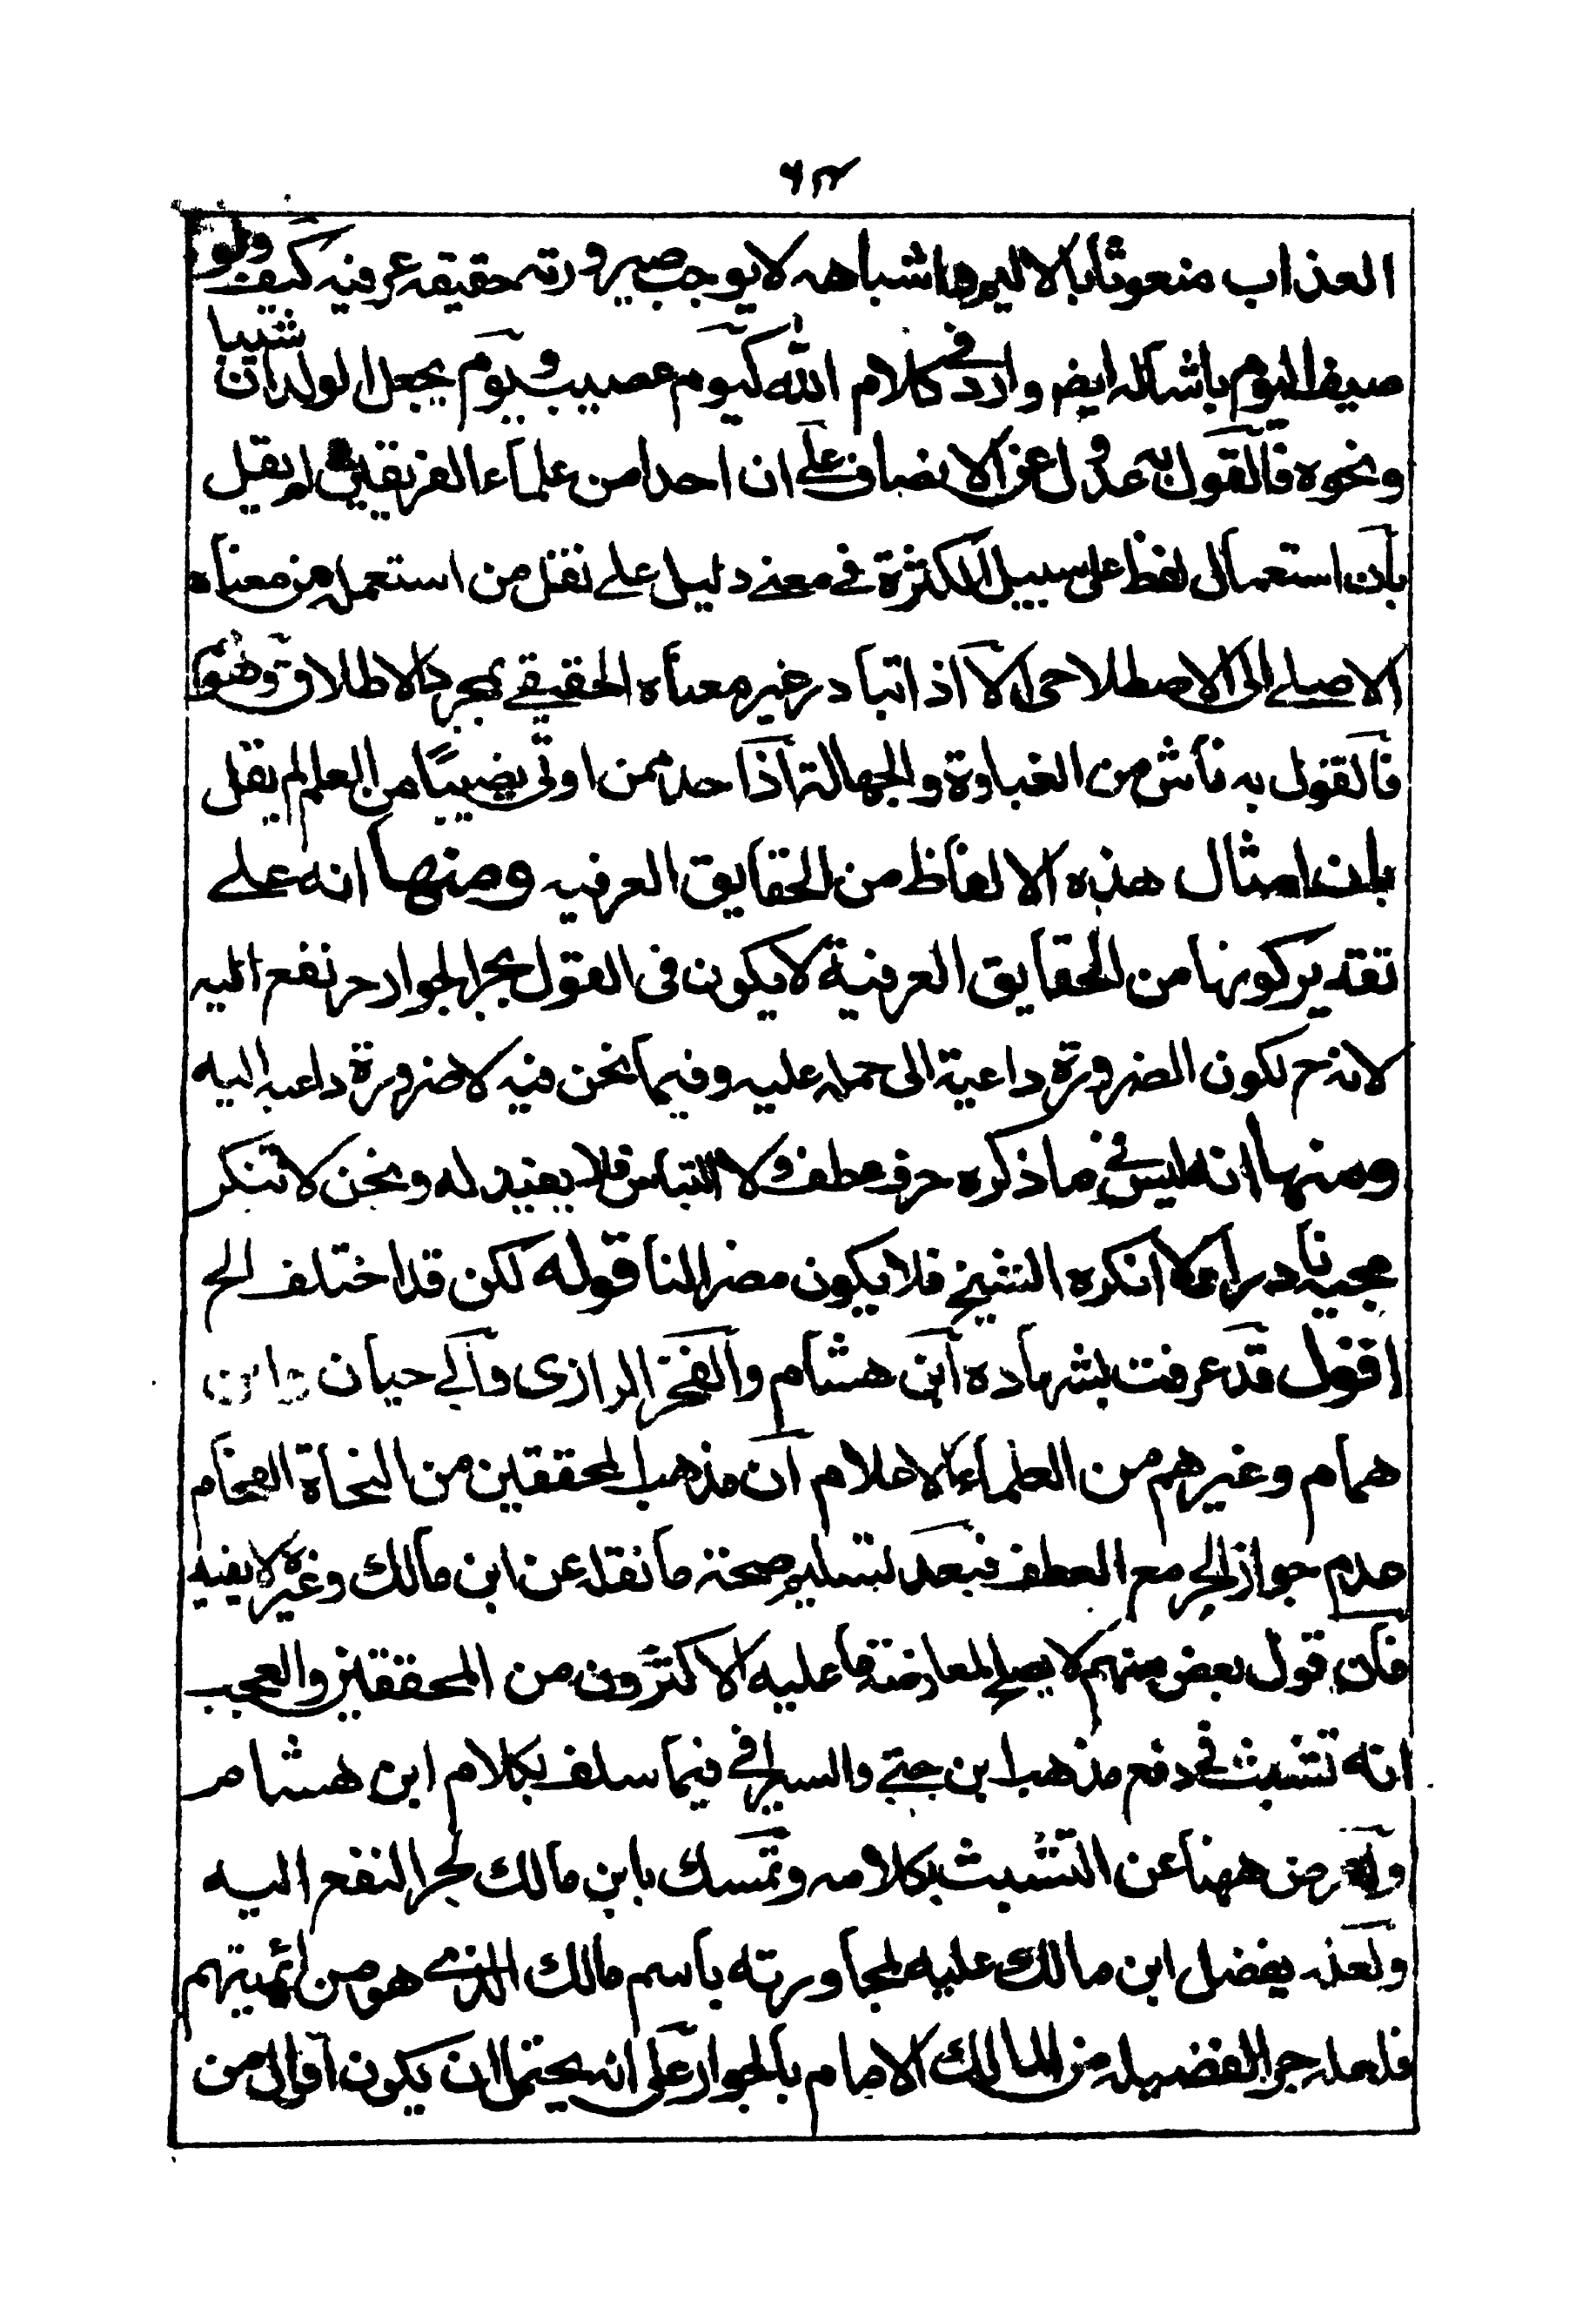 ٦٣
العذاب منعوتا بالاليم واشباهه لا يوجب صيرورته حقيقه عرفيه كيف ولو
صيف اليوم باشاله ايض وارد في كلام الله كيوم عصيب ويوم يجعل الولدان شيبا
ونحوه فالقول به عدول عن الانصاف على ان احدا من علماء الفريقين لم يقل
بان استعمال لفظ على سبيل الكثرة في معنى دليل على نقل من استعمله من معناه
الاصلي الى الاصطلاحي الا اذا تبادر غير معناه الحقيقي بمجرد الاطلاق وهو
فالقول به ناش من الغباوة والجهالة اذ احد ممن اوتي نصيبا من العلم لم يقل
بان امثال هذه الالفاظ من الحقايق العرفيه ومنها انه على
تقدير كونها من الحقايق العرفية لا يكون في القول بجر الجوار جر نفع اليه
لانه ح لكون الضرورة داعية الى حمله عليه وفيما نحن فيه لا ضرورة داعيه اليه
ومنها انه ليس في ما ذكره حرف عطف ولا التباس فلا يفيد له ونحن لا ننكر
مجيئه نادرا ولا انكره الشيخ فلا يكون مضرا لنا قوله لكن قد اختلف الخ
اقول قد عرفت بشهاده ابن هشام والفخر الرازي وابي حيان وابن
همام وغيرهم من العلماء الاعلام ان مذهب المحققين من النحاة الفخام
عدم جواز الجر مع العطف فبعد تسليم صحة ما نقله عن ابن مالك وغيره لا يفيه
فان قول بعض منهم لا يصلح لمعارضة ما عليه الاكثرون من المحققين والعجب
انه تشبث في دفع مذهب ابن جني والسيرافي فيما سلف بكلام ابن هشام
واعرض ههنا عن التشبث بكلامه وتمسك بابن مالك لجر النفع اليه
ولعله يفضل ابن مالك عليه لمجاورته باسم مالك الذي هو من ائميتهم
فلعله جر الفضيله من المالك الامام بالجوار على انه يحتمل ان يكون اقوال من